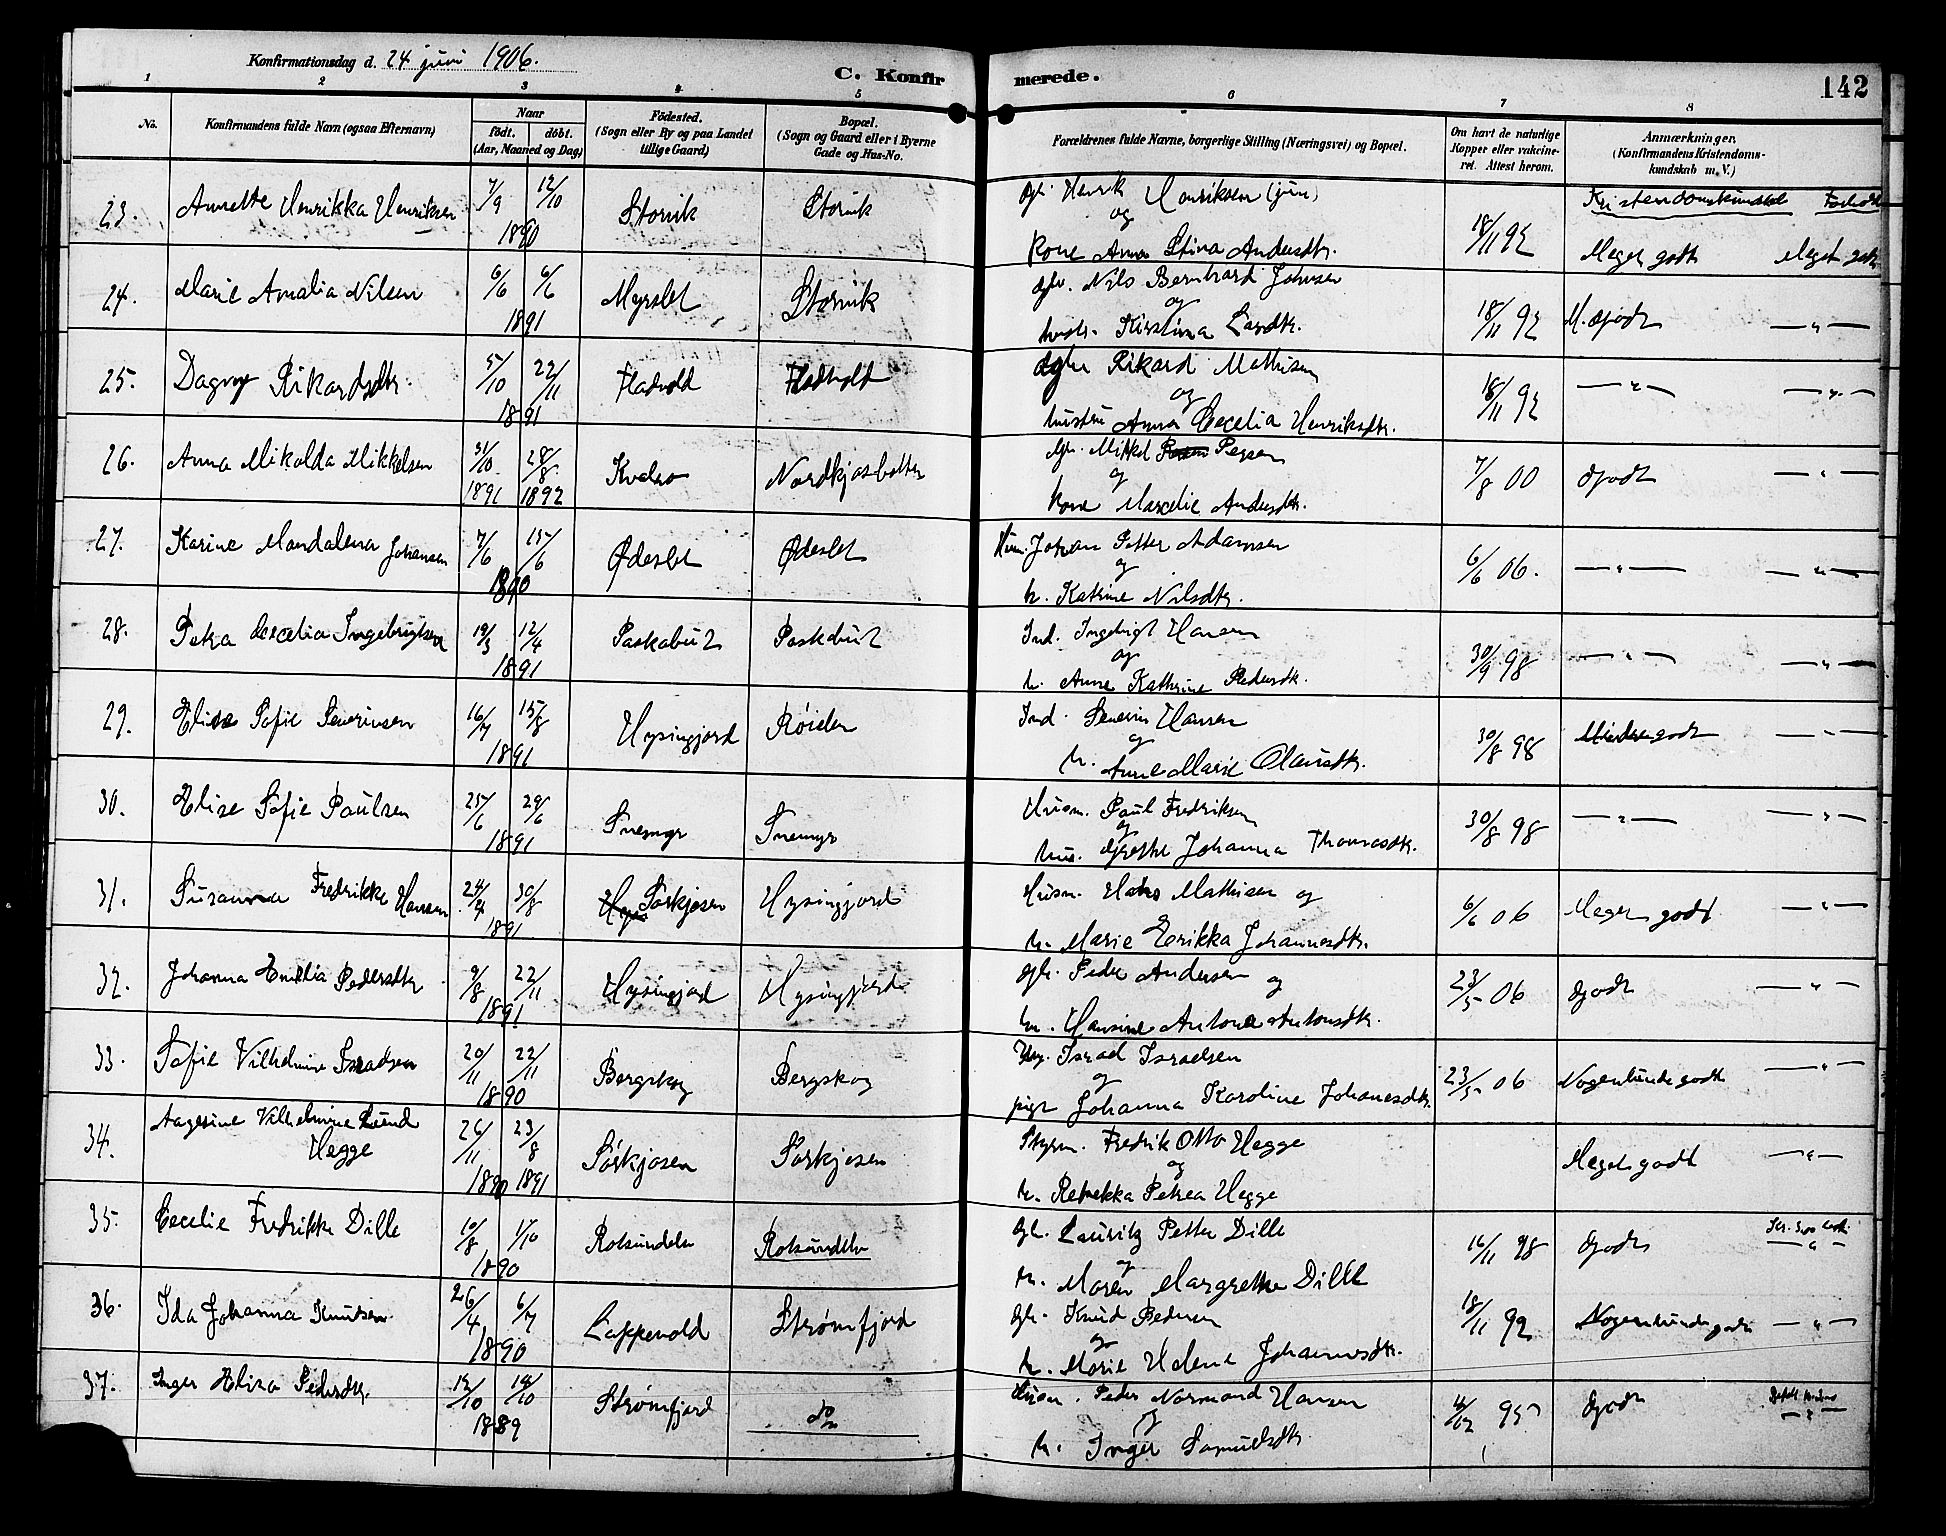 Konfirmationsdag d. 24 juni 1906.
C. Konfirmerede.
142
1 2 3 4 5 6 7 8
No.
Konfirmandens fulde Navn (ogsaa Efternavn)
Naar
födt. döbt.
(Aar, Maaned og Dag)
Födested.
(Sogn eller By og paa Landet
tillige Gaard)
Bopæl.
(Sogn og Gaard eller i Byerne
Gade og Hus-No.
Forældrenes fulde Navne, borgerlige Stilling (Næringsvei) og Bopæl.
Om havt de naturlige
Kopper eller vakcine-
ret. Attest herom.
Anmærkninger.
(Konfirmandens Kristendoms-
kundskab m. V.)
Kristendomskundskab Forhold
23. Annette Henrikka Henriksen 7/9 12/10 1890 Storvik Storvik
Gbr. Henrik Henriksen (jun)
og
kone Anna Stina Andersdtr. 18/11 92 Meget godt Meget godt
24. Marie Amalia Nilsen 6/6 6/6 1891 Myrslet Storvik
Gbr. Nils Bernhard Johnsen
og
hustr. Kirstina Larsdtr. 18/11 92 M. Godt —„—
25. Dagny Rikardsdtr. 5/10 22/11 1891 Fladvold Fladvold
Gbr Rikard Mathisen
og
hustru Anna Cecelia Henriksdtr. 18/11 92 —„— —„—
26. Anna Mikalda Mikkelsen 31/10 1891 28/8 1892 Kvalsø Nordkjosbotten
Gbr. Mikkel Persen
og
kone Marcelie Andersdtr. 7/8 00 Godt —„—
27. Karine Mandalena Johansen 7/6 15/6 1890 Ødeslet Ødeslet
Husm. Johan Petter Adamsen
og
h. Katrine Nilsdtr. 6/6 06. —„— —„—
28. Petra Cecelia Ingebrigtsen 19/3 12/4 1891 Paskabut Paskabut
Ind. Ingebrigt Hansen
og
h. Anne Kathrine Pedersdtr. 30/9 98 —„— —„—
29. Elise Sofie Severinsen 16/7 15/8 1891 Hysingjord Røielen
Ind. Severin Hansen
og
h. Anne Marie Olausdtr. 30/8 98 Mindre godt —„—
30. Elise Sofie Paulsen 25/6 29/6 1891 Snemyr Snemyr
Husm. Paul Fredriksen
og
hus. Grethe Johanna Thomasdtr. 30/8 98 —„— —„—
31. Susanna Fredrikke Hansen 24/4 30/8 1891 Sørkjosen Hysingjord
Husm. Hans Mathisen og
h. Marie Erikka Johannesdtr. 6/6 06 Meget godt —„—
32. Johanna Emelia Pedersdtr 9/8 22/11 1891 Hysingjord Hysingjord
Gbr. Peder Andersen og
h. Hansine Antone Antonsdtr. 23/5 06 Godt —„—
33. Sofie Vilhelmine Israelsen 20/11 22/11 1890 Bergskog Bergskog
Ung. Israel Israelsen
og
pige Johanna Karoline Johanesdtr. 23/5 06 Nogenlunde godt —„—
34. Aagesine Vilhelmine Lund
Hegge 26/11 1890 23/8 1891 Sørkjosen Sørkjosen
Styrm. Fredrik Otto Hegge
og
h. Rebekka Petrea Hegge Meget godt —„—
35. Cecelie Fredrikke Dille 10/8 1/10 1890 Rotsundelv Rotsundelv
Gbr. Lauritz Petter Dille
og
h. Maren Margrethe Dille 16/11 98 Godt —„—
36. Ida Johanna Knutsen. 26/4 6/7 1890 Lappevold Strømfjord
Gbr. Knud Pedersen
og
h. Marie Helene Johannesdtr. 18/11 92 Nogenlunde godt —„—
37. Inger Elisa Pedersdtr. 12/10 14/10 1889 Strømfjord do
Husm. Peder Normand Hansen
og
h. Inger Samuelsdtr 95 Godt —„—